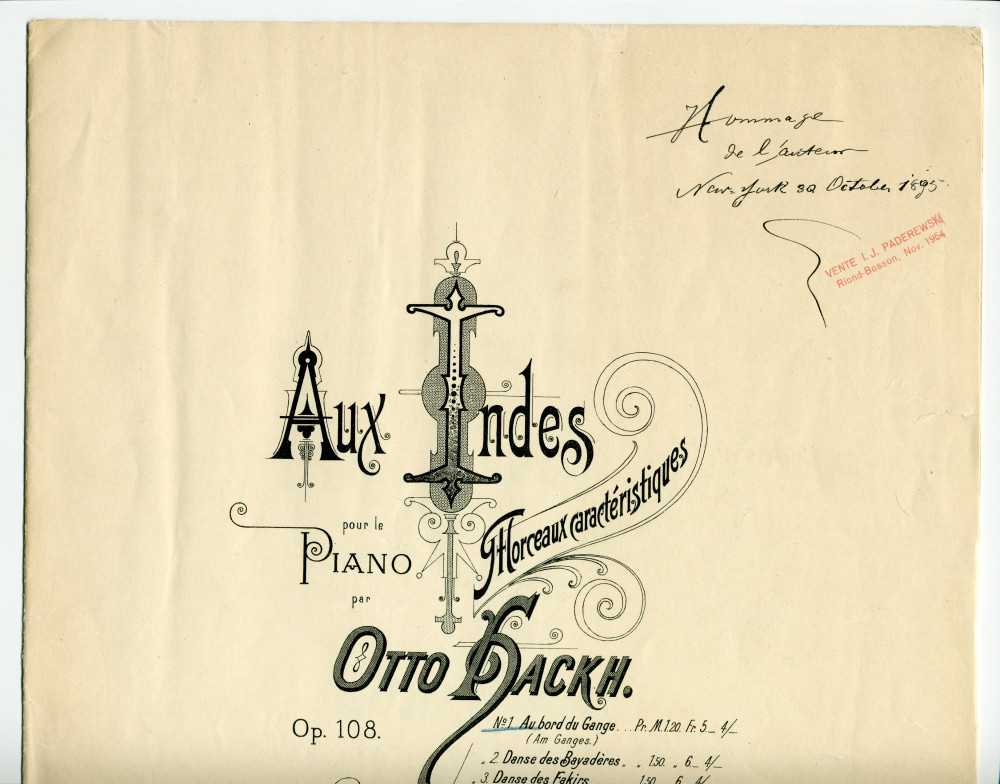 Hommage
de l'auteur
New-York 30 October 1895.
VENTE I. J. PADEREWSKI
Riond-Bosson, Nov. 1964
Aux Indes
Morceaux caractéristiques
pour le
PIANO
par
OTTO HACKH.
Op. 108.
No 1. Au bord du Gange... Pr. M. 1.20. Fr. 5_ 4/_
(Am Ganges.)
„ 2. Danse des Bayadères. „ 1.50. „ 6_ 4/_
„ 3. Danse des Fakirs 1.50 „ 6 4/